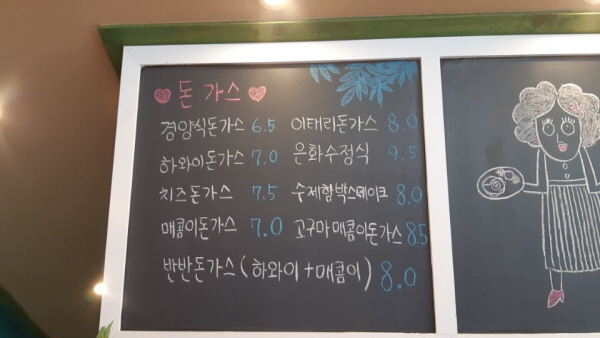 돈 가스
경양식돈가스 6.5 이태리돈가스 8.0
하와이돈가스 7.0 은화수정식 9.5
치즈돈가스 7.5 수제함박스테이크 8.0
매콤이돈가스 7.0 고구마매콤이돈가스 8.5
반반돈가스(하와이+매콤이) 8.0